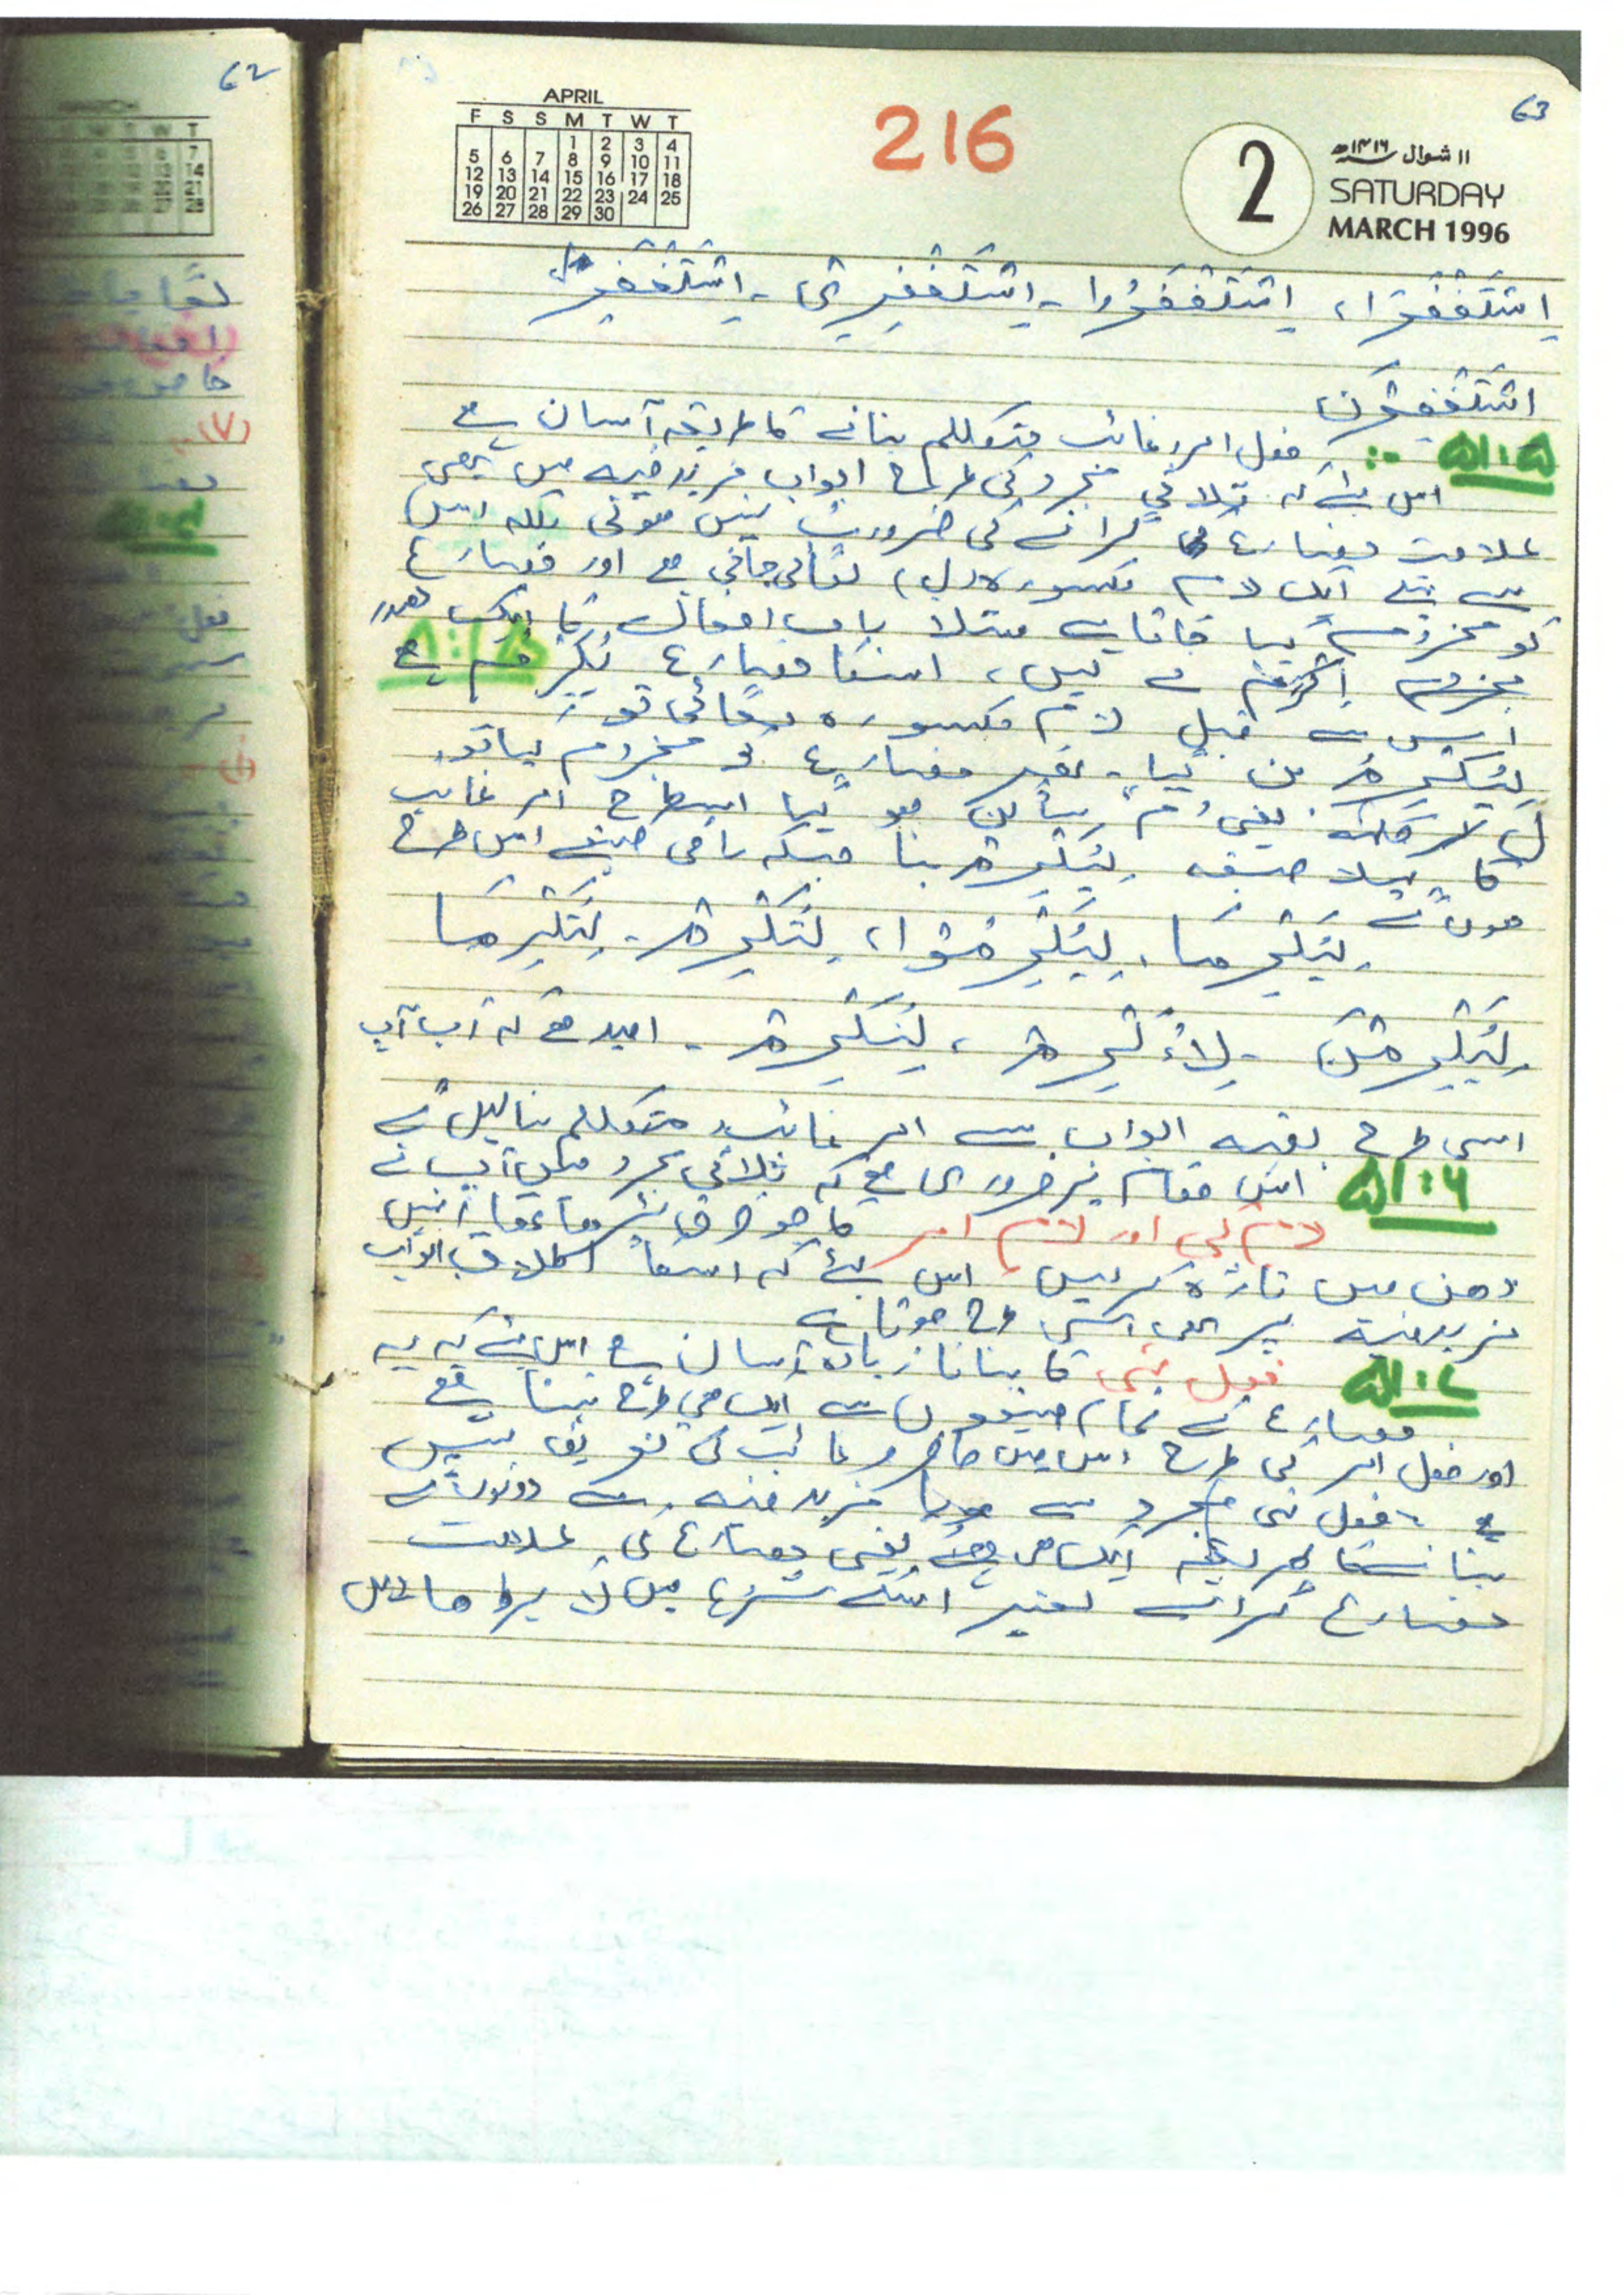 62
63
APRIL
F S S M T W T
1 2 3 4
5 6 7 8 9 10 11
12 13 14 15 16 17 18
19 20 21 22 23 24 25
26 27 28 29 30
216
2
۱۱ شوال ۱۴۱۶ھ
SATURDAY
MARCH 1996
اِسْتَغْفِرَا، اِسْتَغْفِرُوا - اِسْتَغْفِرِی - اِسْتَغْفِرَا
اِسْتَغْفِرْنَ
۵۱:۵ :- فعل امر غائب متکلم بنانے کا طریقہ آسان ہے
اس لئے کہ ثلاثی مجرد کی طرح ابواب مزید فیہ میں بھی
علامت مضارع گرانے کی ضرورت نہیں ہوتی بلکہ اس
سے پہلے ایک لام مکسورہ (لِ) لگائی جاتی ہے اور مضارع
کو مجزوم کیا جاتا ہے مثلا باب افعال کا ایک مصدر
اِکْرَامٌ لیں، اسکا مضارع یُکْرِمُ ہے
اس سے قبل لام مکسورہ لگائی تو
لِیُکْرِمُ بن گیا - پھر مضارع کو مجزوم کیا تو
ل کلمہ یعنی "م" ساکن ہو گیا اسطرح امر غائب
کا پہلا صیغہ لِیُکْرِمْ بنا جبکہ باقی صیغے اس طرح
ہوں گے
لِیُکْرِمَا، لِیُکْرِمُوا، لِتُکْرِمْ - لِتُکْرِمَا
لِیُکْرِمْنَ - لِأُکْرِمْ، لِنُکْرِمْ - امید ہے کہ اب آپ
اسی طرح بقیہ ابواب سے امر غائب و متکلم بنا لیں گے
۵۱:۶ اس مقام پر ضروری ہے کہ ثلاثی مجرد میں آپ نے
لام کَی اور لام امر کا جو فرق پڑھا تھا انہیں
ذہن میں تازہ کرلیں، اس لئے کہ اسکا اطلاق ابواب
مزید فیہ پر بھی اسی طرح ہوتا ہے
۵۱:۷ فعل نہی کا بنانا زیادہ آسان ہے اس لئے کہ یہ
مضارع کے تمام صیغوں سے ایک ہی طرح بنتا ہے
اور فعل امر کی طرح اس میں حاضر و غائب کی تفریق نہیں
ہے، فعل نہی مجرد سے ہو یا مزید فیہ سے دونوں کے
بنانے کا طریقہ ایک ہی ہے یعنی مضارع کی علامت
مضارع گرائے بغیر اسکے شروع میں لَا بڑھا دیں